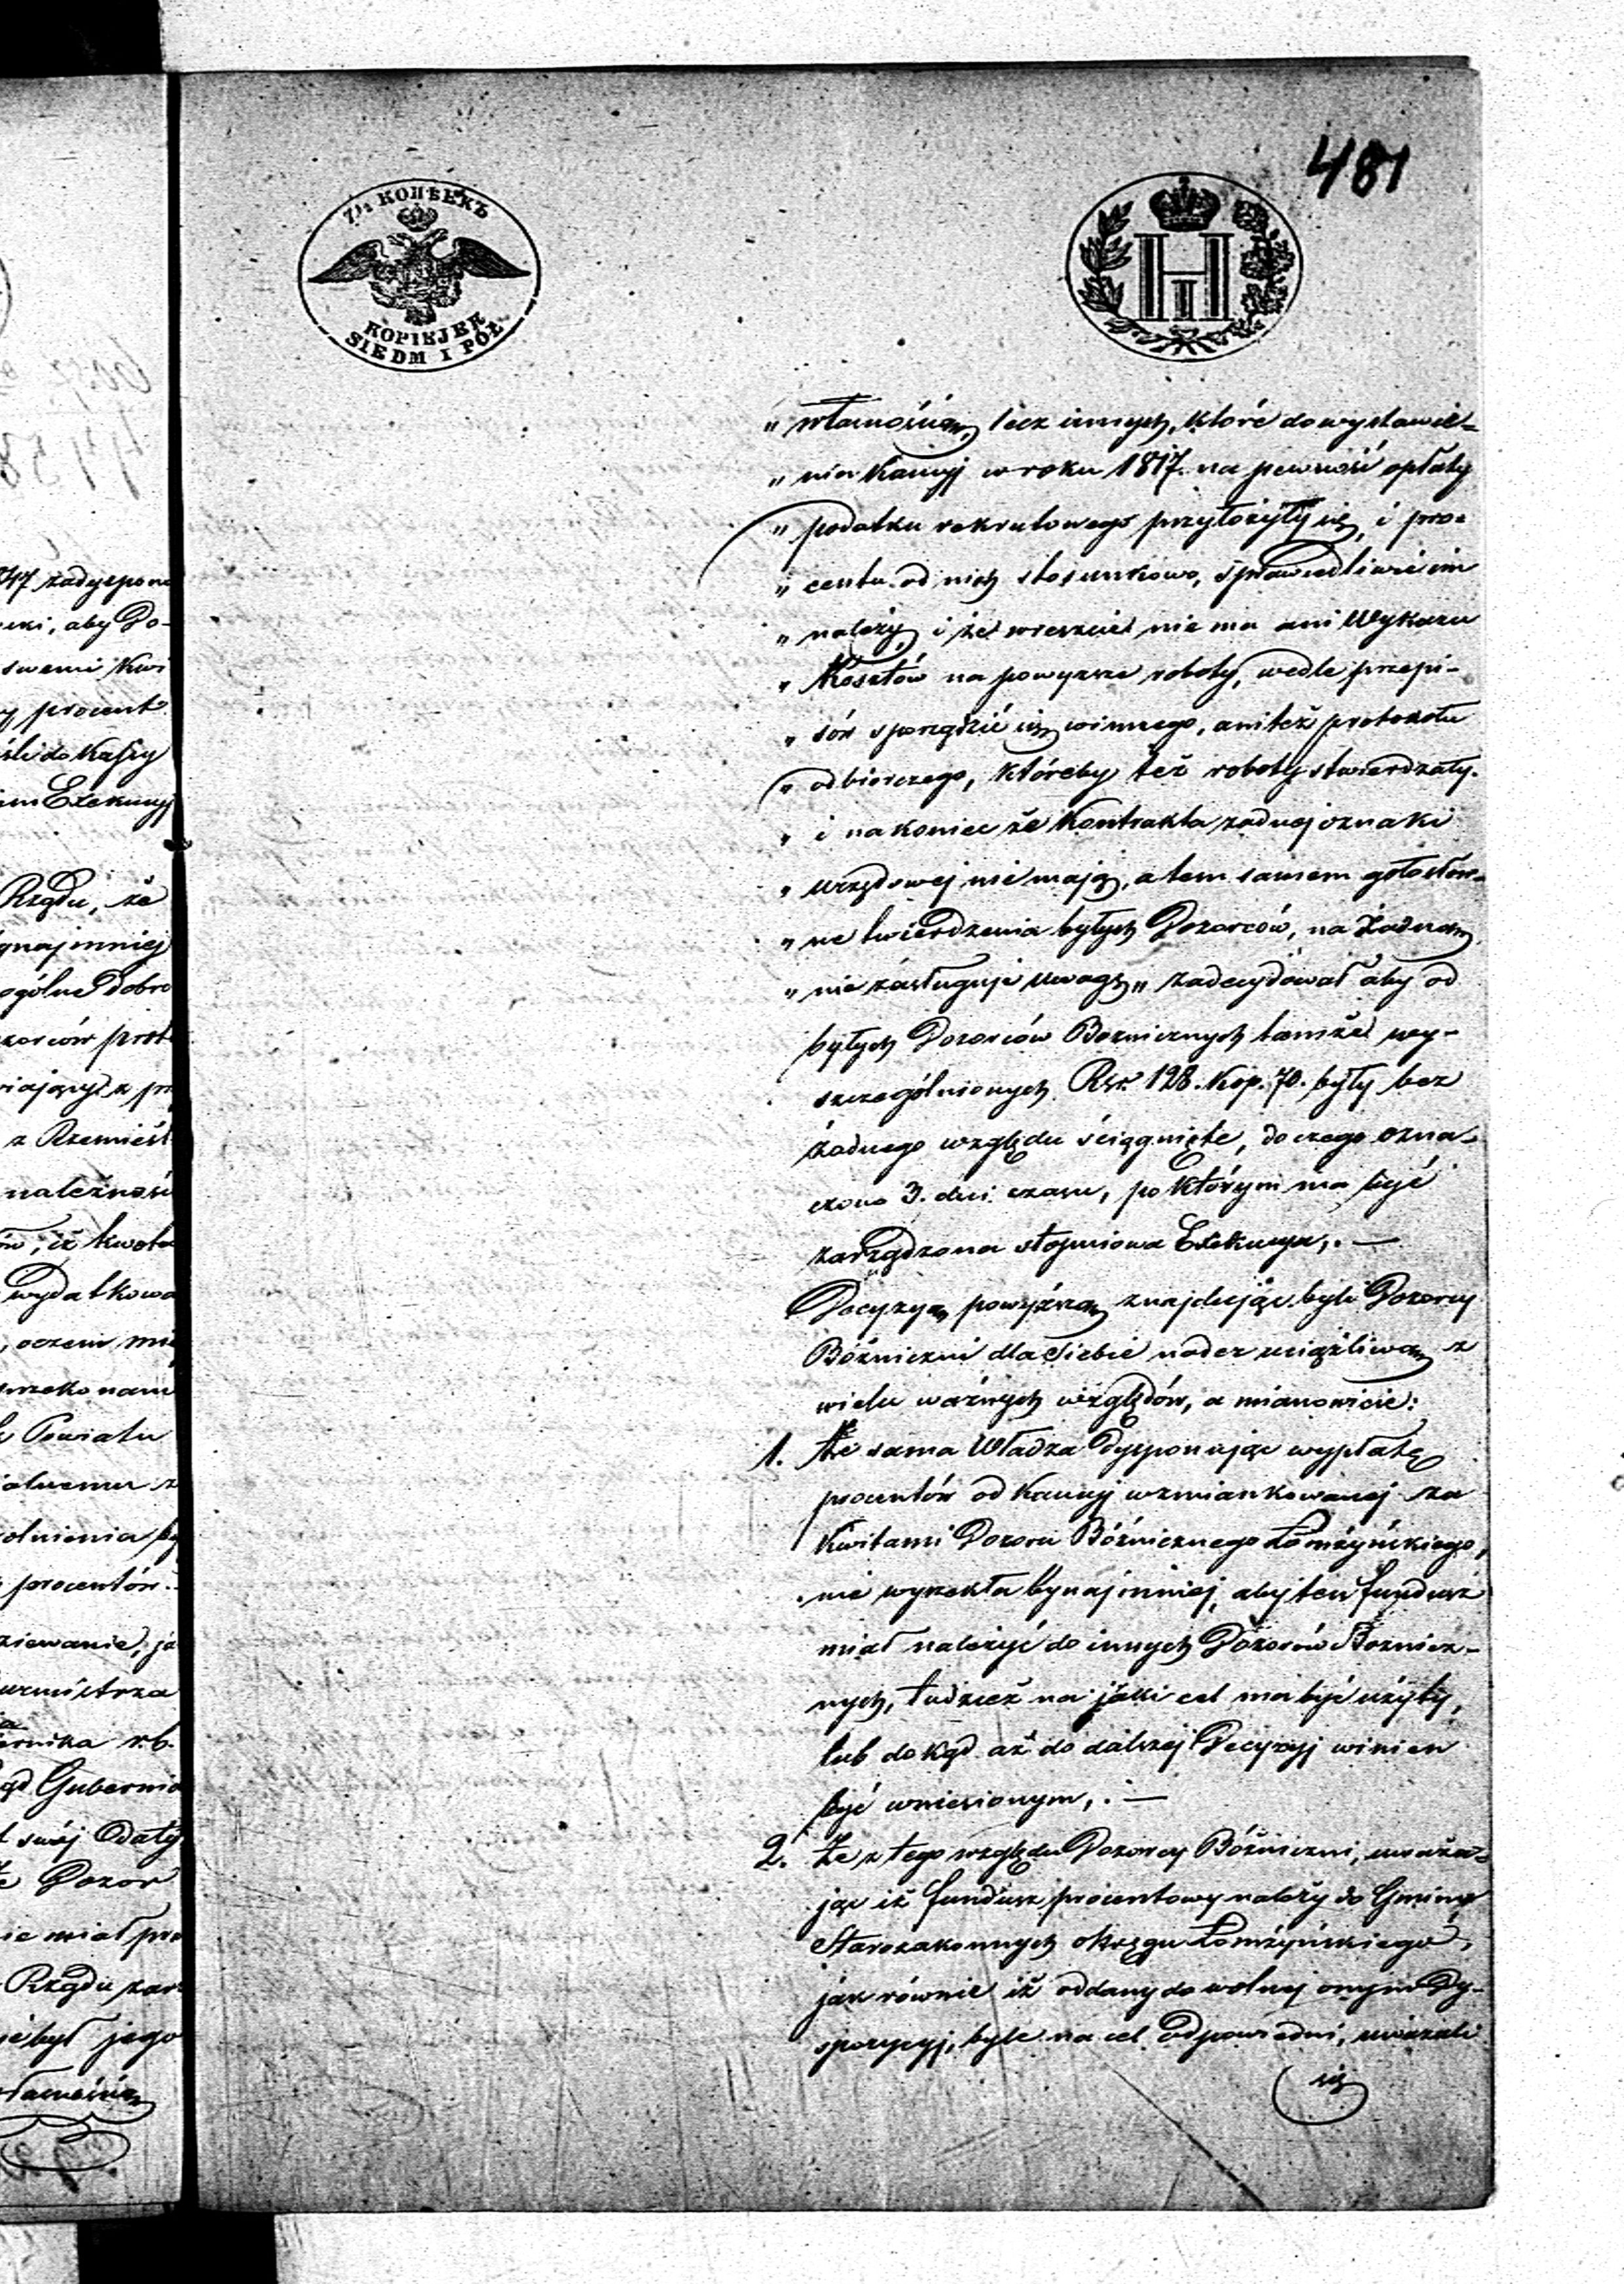 481
7½ КОПѢЕКЪ
KOPIEJEK
SIEDM I PÓŁ
H I
„ własnością, lecz innych, które do wystawie-
„ nia Kaucyj w roku 1817. na pewność opłaty
„ podatku rekrutowego przyłożyły się, i pro-
„ centu od nich stosunkowo, sprawiedliwie im
„ należy, i że wreszcie nie ma ani Wykazu
„ Kosztów na powyższe roboty, wedle przepi-
„ sów sporządzić się winnego, ani też protokołu
„ odbiorczego, któreby też roboty stwierdzały.
„ i na koniec że Kontrakta żadnej oznaki
„ urzędowej nie mają, a tem samem gołosłow-
„ ne twierdzenia byłych Dozorców, na żadną
„ nie zasługuje uwagę „ zadecydował aby od
byłych Dozorców Boznicznych tamże wy-
szczególnionych Rsr. 128. Kop. 70. były bez
żadnego względu ściągnięte, do czego ozna-
czono 3. dni czasu, po którym ma być
zarządzona stopniowa Exekucya,. —
Decyzyą powyższą znajdując byli Dozorcy
Bóżniczni dla siebie nader uciążliwą z
wielu ważnych względów, a mianowicie:
1. Że sama Władza dysponując wypłatę
procentów od Kaucyj wzmiankowanej za
Kwitami Dozoru Bóżnicznego Łomżyńskiego,
nie wyrzekła bynajmniej, aby ten fundusz
miał należyć do innych Dozorów Boznicz-
nych, tudzież na jaki cel ma być użyty,
lub dokąd aż do dalszej Decyzyj winien
być wniesionym,. —
2. Że z tego względu Dozorcy Bóżniczni, uważa-
jąc iż fundusz procentowy należy do Gminy
Starozakonnych okręgu Łomżyńskiego,
jak równie iż oddany do wolnej onym Dy-
spozycyj, byle na cel odpowiedni, uważali
się